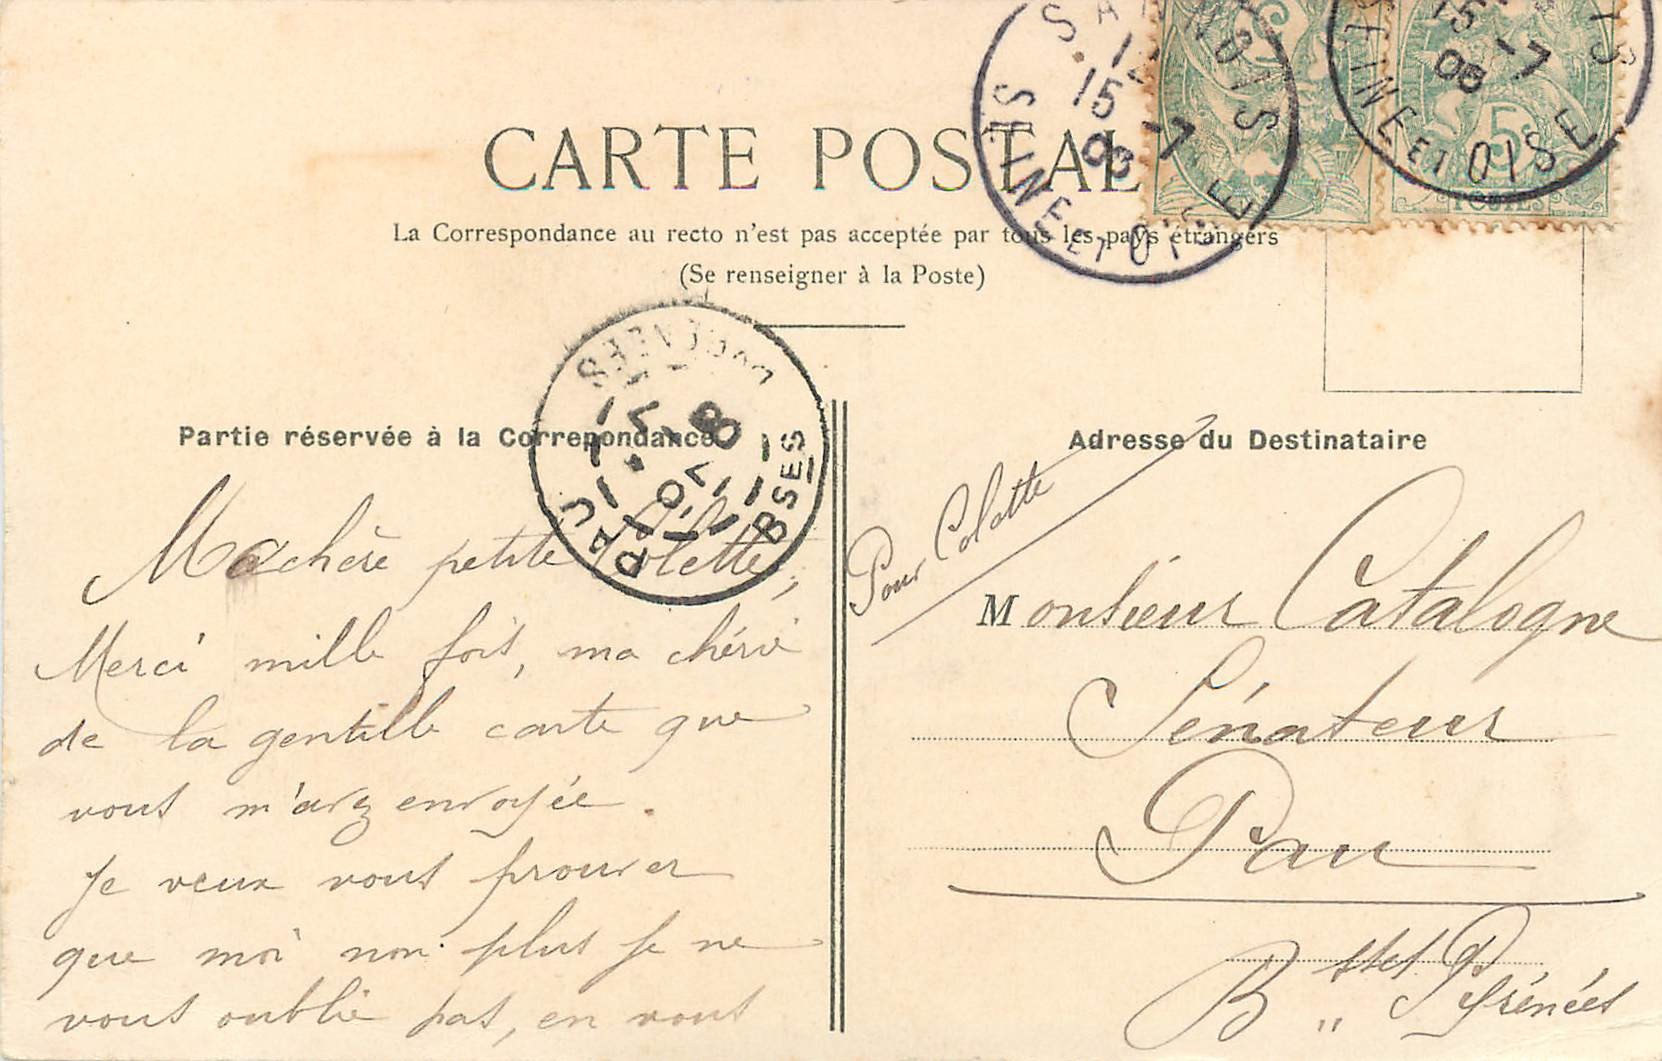 CARTE POSTALE
La Correspondance au recto n'est pas acceptée par tous les pays étrangers
(Se renseigner à la Poste)
SANNOIS
15-7
SEINE ET OISE
15-7
SEINE ET OISE
5
POSTES
PAU
BSES PYRENEES
Partie réservée à la Correpondance
Ma chère petite Colette,
Merci mille fois, ma chérie
de la gentille carte que
vous m'avez envoyée.
Je veux vous prouver
que moi non plus je ne
vous oublie pas, en vous
Adresse du Destinataire
Pour Colette
Monsieur Catalogne
Sénateur
Pau
Bses Pyrénées